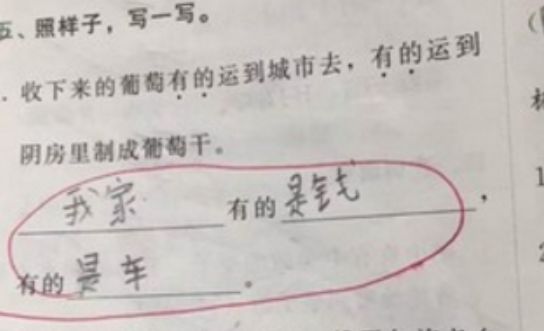 五、照样子，写一写。
. 收下来的葡萄有的运到城市去，有的运到
阴房里制成葡萄干。
我家有的是钱，
有的是车。